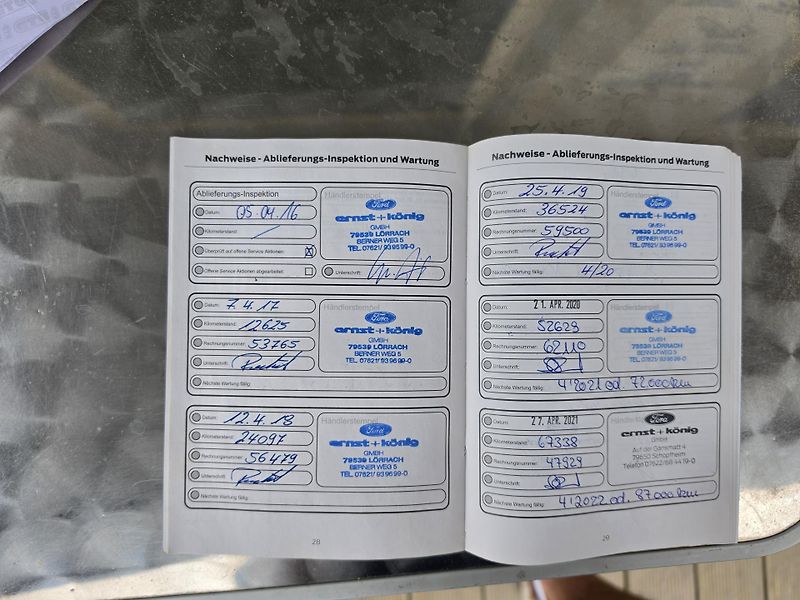 Nachweise - Ablieferungs-Inspektion und Wartung
Ablieferungs-Inspektion
Datum: 05.04.16
Kilometerstand: /
Überprüft auf offene Service Aktionen: X
Offene Service Aktionen abgearbeitet:
Händlerstempel
Ford
ernst+könig
GMBH
79539 LÖRRACH
BERNER WEG 5
TEL. 07621/93 96 99-0
Unterschrift:
Datum: 7.4.17
Kilometerstand: 12625
Rechnungsnummer: 53765
Unterschrift:
Nächste Wartung fällig:
Händlerstempel
Ford
ernst+könig
GMBH
79539 LÖRRACH
BERNER WEG 5
TEL. 07621/93 96 99-0
Datum: 12.4.18
Kilometerstand: 24097
Rechnungsnummer: 56479
Unterschrift:
Nächste Wartung fällig:
Händlerstempel
Ford
ernst+könig
GMBH
79539 LÖRRACH
BERNER WEG 5
TEL. 07621/93 96 99-0
28
Nachweise - Ablieferungs-Inspektion und Wartung
Datum: 25.4.19
Kilometerstand: 36524
Rechnungsnummer: 59500
Unterschrift:
Nächste Wartung fällig: 4/20
Händlerstempel
Ford
ernst+könig
GMBH
79539 LÖRRACH
BERNER WEG 5
TEL. 07621/93 96 99-0
Datum: 21. APR. 2020
Kilometerstand: 52629
Rechnungsnummer: 62110
Unterschrift:
Nächste Wartung fällig: 4/2021 od. 72000km
Händlerstempel
Ford
ernst+könig
GMBH
79539 LÖRRACH
BERNER WEG 5
TEL. 07621/93 96 99-0
Datum: 27. APR. 2021
Kilometerstand: 67338
Rechnungsnummer: 47929
Unterschrift:
Nächste Wartung fällig: 4/2022 od. 87000km
Händlerstempel
Ford
ernst+könig
GmbH
Auf der Gänsmatt 4
79650 Schopfheim
Telefon 07622/68 44 19-0
29